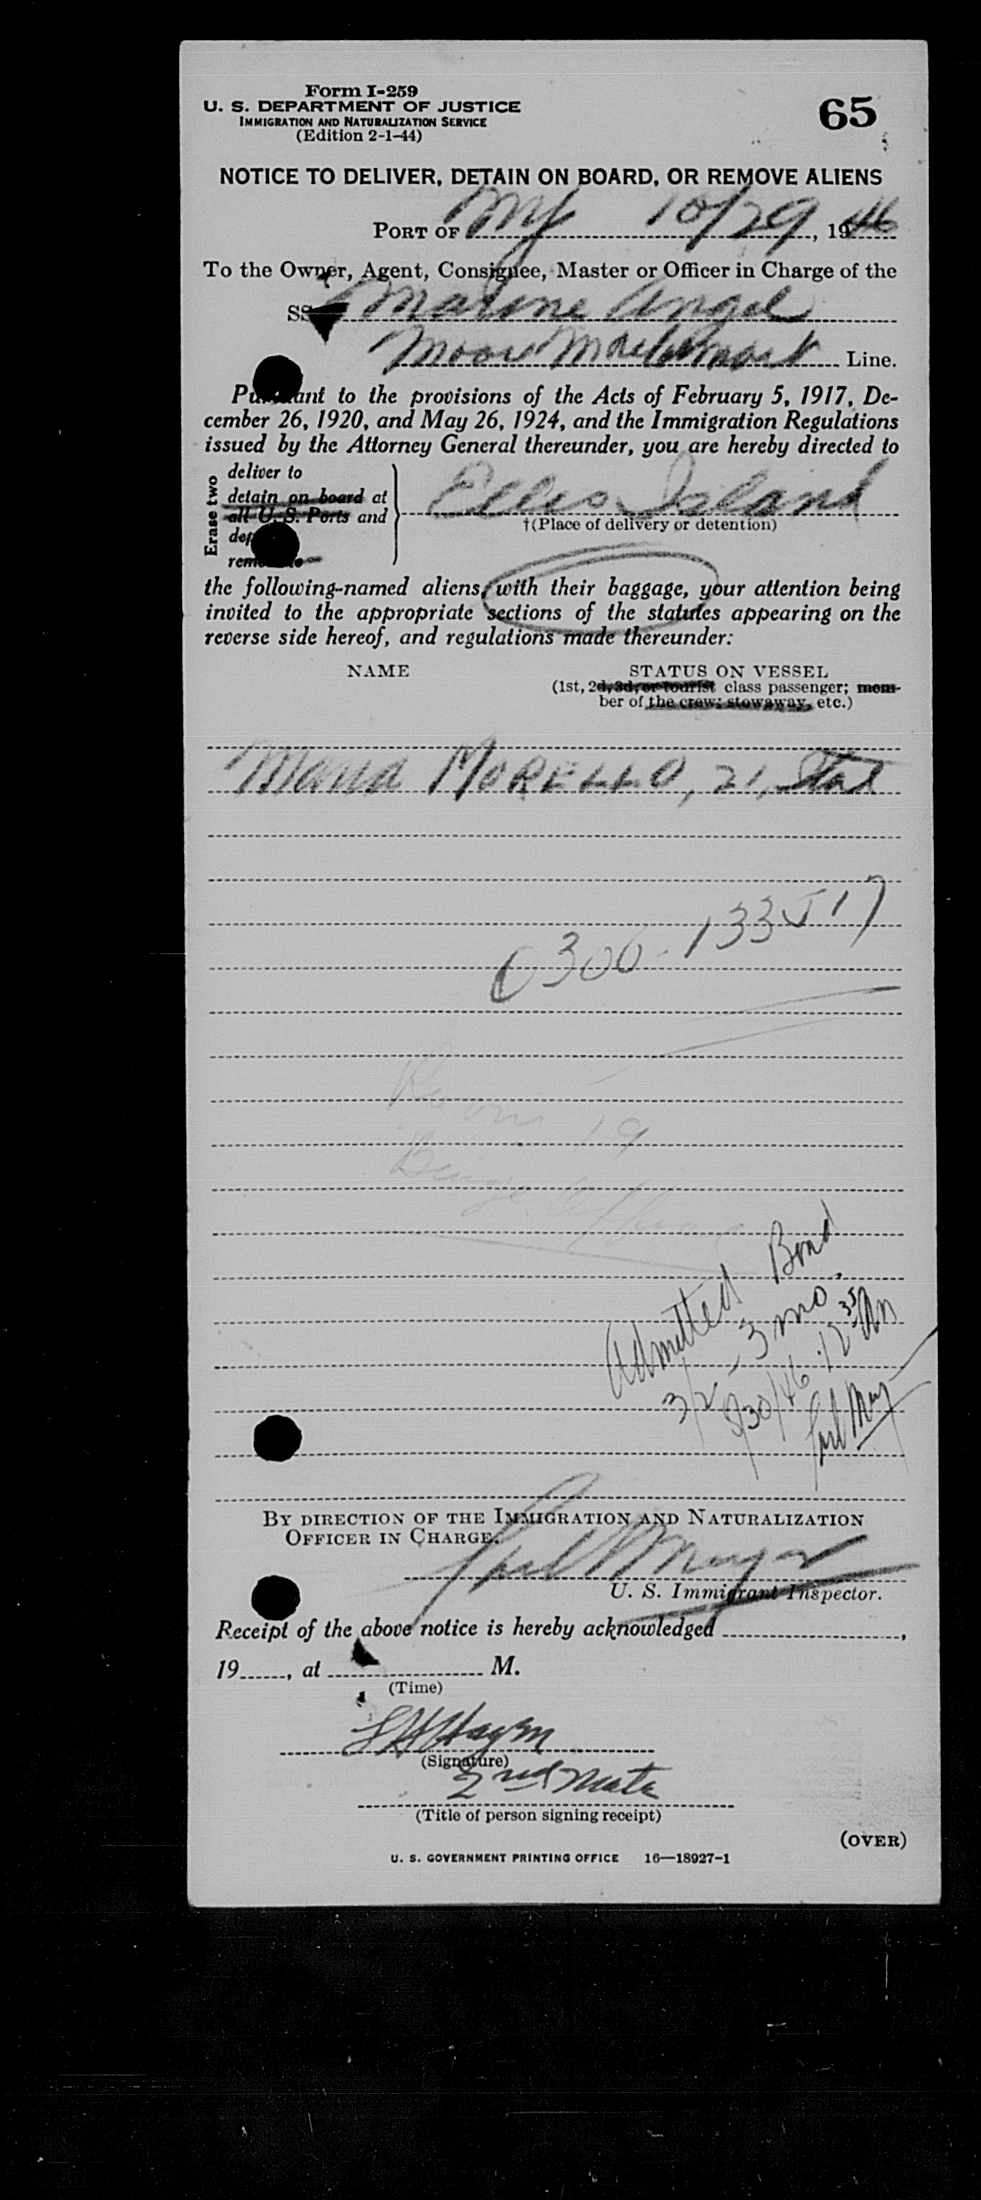 Form I-259
U. S. DEPARTMENT OF JUSTICE
IMMIGRATION AND NATURALIZATION SERVICE
(Edition 2-1-44)
65
NOTICE TO DELIVER, DETAIN ON BOARD, OR REMOVE ALIENS
PORT OF NY 10/29, 1946
To the Owner, Agent, Consignee, Master or Officer in Charge of the
SS Marine Angel
Moore MacCormack Line.
Pursuant to the provisions of the Acts of February 5, 1917, De-
cember 26, 1920, and May 26, 1924, and the Immigration Regulations
issued by the Attorney General thereunder, you are hereby directed to
Erase two
deliver to
detain on board at
all U. S. Ports and
Ellis Island
†(Place of delivery or detention)
the following-named aliens, with their baggage, your attention being
invited to the appropriate sections of the statutes appearing on the
reverse side hereof, and regulations made thereunder:
NAME STATUS ON VESSEL
(1st, 2d, 3d, or tourist class passenger; mem-
ber of the crew; stowaway, etc.)
Maria MORELLO, 21,
0300-133517
Room 19
Admitted Bond
3 mo.
30/46 12 35 AM
BY DIRECTION OF THE IMMIGRATION AND NATURALIZATION
OFFICER IN CHARGE.
U. S. Immigrant Inspector.
Receipt of the above notice is hereby acknowledged
19 , at M.
(Time)
(Signature)
2nd Mate
(Title of person signing receipt)
(OVER)
U. S. GOVERNMENT PRINTING OFFICE 16—18927-1